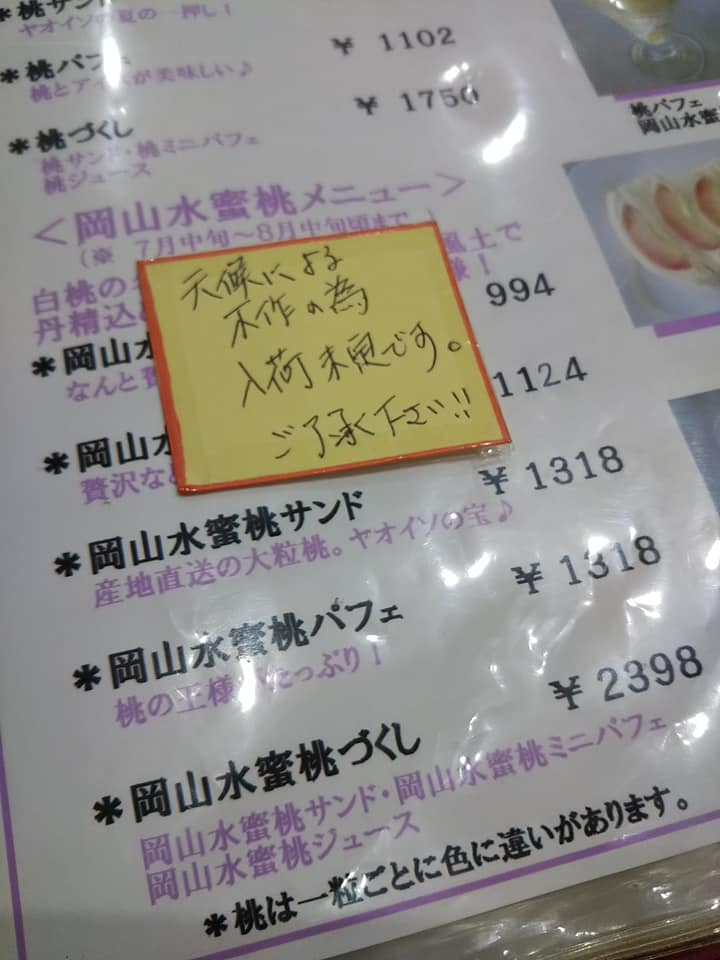 *桃サンド
ヤオイソの夏の一押し！
¥ 1102
*桃パフェ
桃とアイスが美味しい♪
¥ 1750
*桃づくし
桃サンド・桃ミニパフェ
桃ジュース
桃パフェ
岡山水蜜
＜岡山水蜜桃メニュー＞
（※ 7月中旬～8月中旬頃まで ）
白桃の
風土で
丹精込
！
994
*岡山水
なんと贅
1124
*岡山水
贅沢な
天候による
不作の為
入荷未定です。
ご了承下さい!!
¥ 1318
*岡山水蜜桃サンド
産地直送の大粒桃。ヤオイソの宝♪
¥ 1318
*岡山水蜜桃パフェ
桃の王様がたっぷり！
¥ 2398
*岡山水蜜桃づくし
岡山水蜜桃サンド・岡山水蜜桃ミニパフェ
岡山水蜜桃ジュース
*桃は一粒ごとに色に違いがあります。